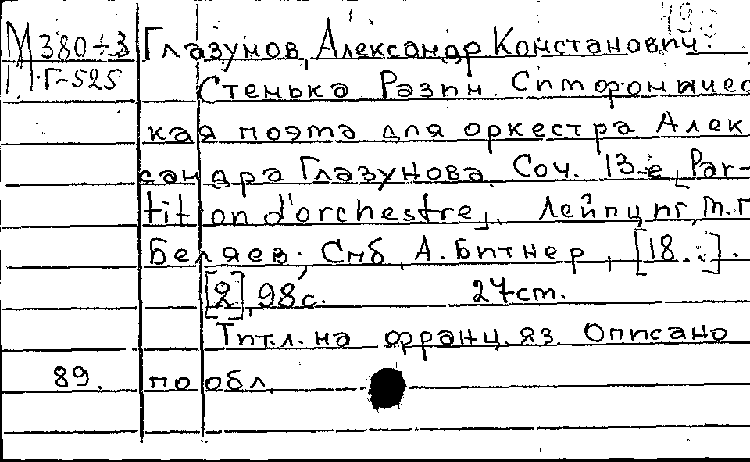 М 380-3 Глазунов, Александр Констанович.
М. Г-525 Стенька Разин. Симфоническ
кая поэма для оркестра Алек
сандра Глазунова. Соч. 13-е [Par-
tition d'orchestre]. Лейпциг, М.П.
Беляев; Спб, А. Битнер, [18..].
[2], 98 с. 27 cm.
Тит.л. на франц. яз. Описано
89. по обл.